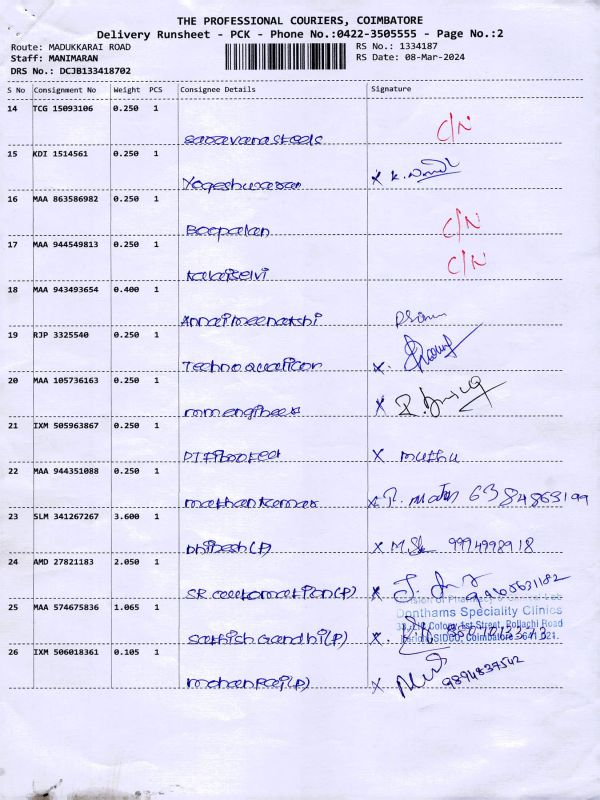 THE PROFESSIONAL COURIERS, COIMBATORE
Delivery Runsheet - PCK - Phone No.:0422-3505555 - Page No.:2
Route: MADUKKARAI ROAD
Staff: MANIMARAN
DRS No.: DCJB133418702
RS No.: 1334187
RS Date: 08-Mar-2024
S No Consignment No Weight PCS Consignee Details Signature
14 TCG 15093106 0.250 1
saravana steels C/N
15 KDI 1514561 0.250 1
Yogeshwaran X K.
16 MAA 863586982 0.250 1
Boopalan C/N
17 MAA 944549813 0.250 1
Kalaiselvi C/N
18 MAA 943493654 0.400 1
Annaimeenakshi
19 RJP 3325540 0.250 1
Techno X
20 MAA 105736163 0.250 1
X
21 IXM 505963867 0.250 1
X muthu
22 MAA 944351088 0.250 1
mathan kumar
23 SLM 341267267 3.600 1
(P) X
24 AMD 27821183 2.050 1
SR automation (P) X
25 MAA 574675836 1.065 1
Donthams Speciality Clinics
sathish Gandhi (P) X
26 IXM 506018361 0.105 1
mohan raj (P) X 9894837542